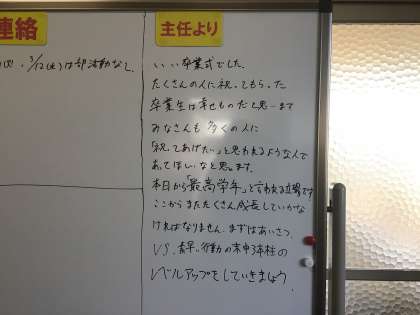 連絡
・3/12(火)は部活動なし。
主任より
いい卒業式でした。
たくさんの人に祝ってもらった
卒業生は幸せものだと思います
みなさんも多くの人に
「祝ってあげたい」と思われるような人で
あってほしいなと思います。
本日から「最高学年」と言われる立場です
ここからまたたくさん成長していかな
ければなりません。まずはあいさつ、
行動の
レベルアップをしていきましょう。